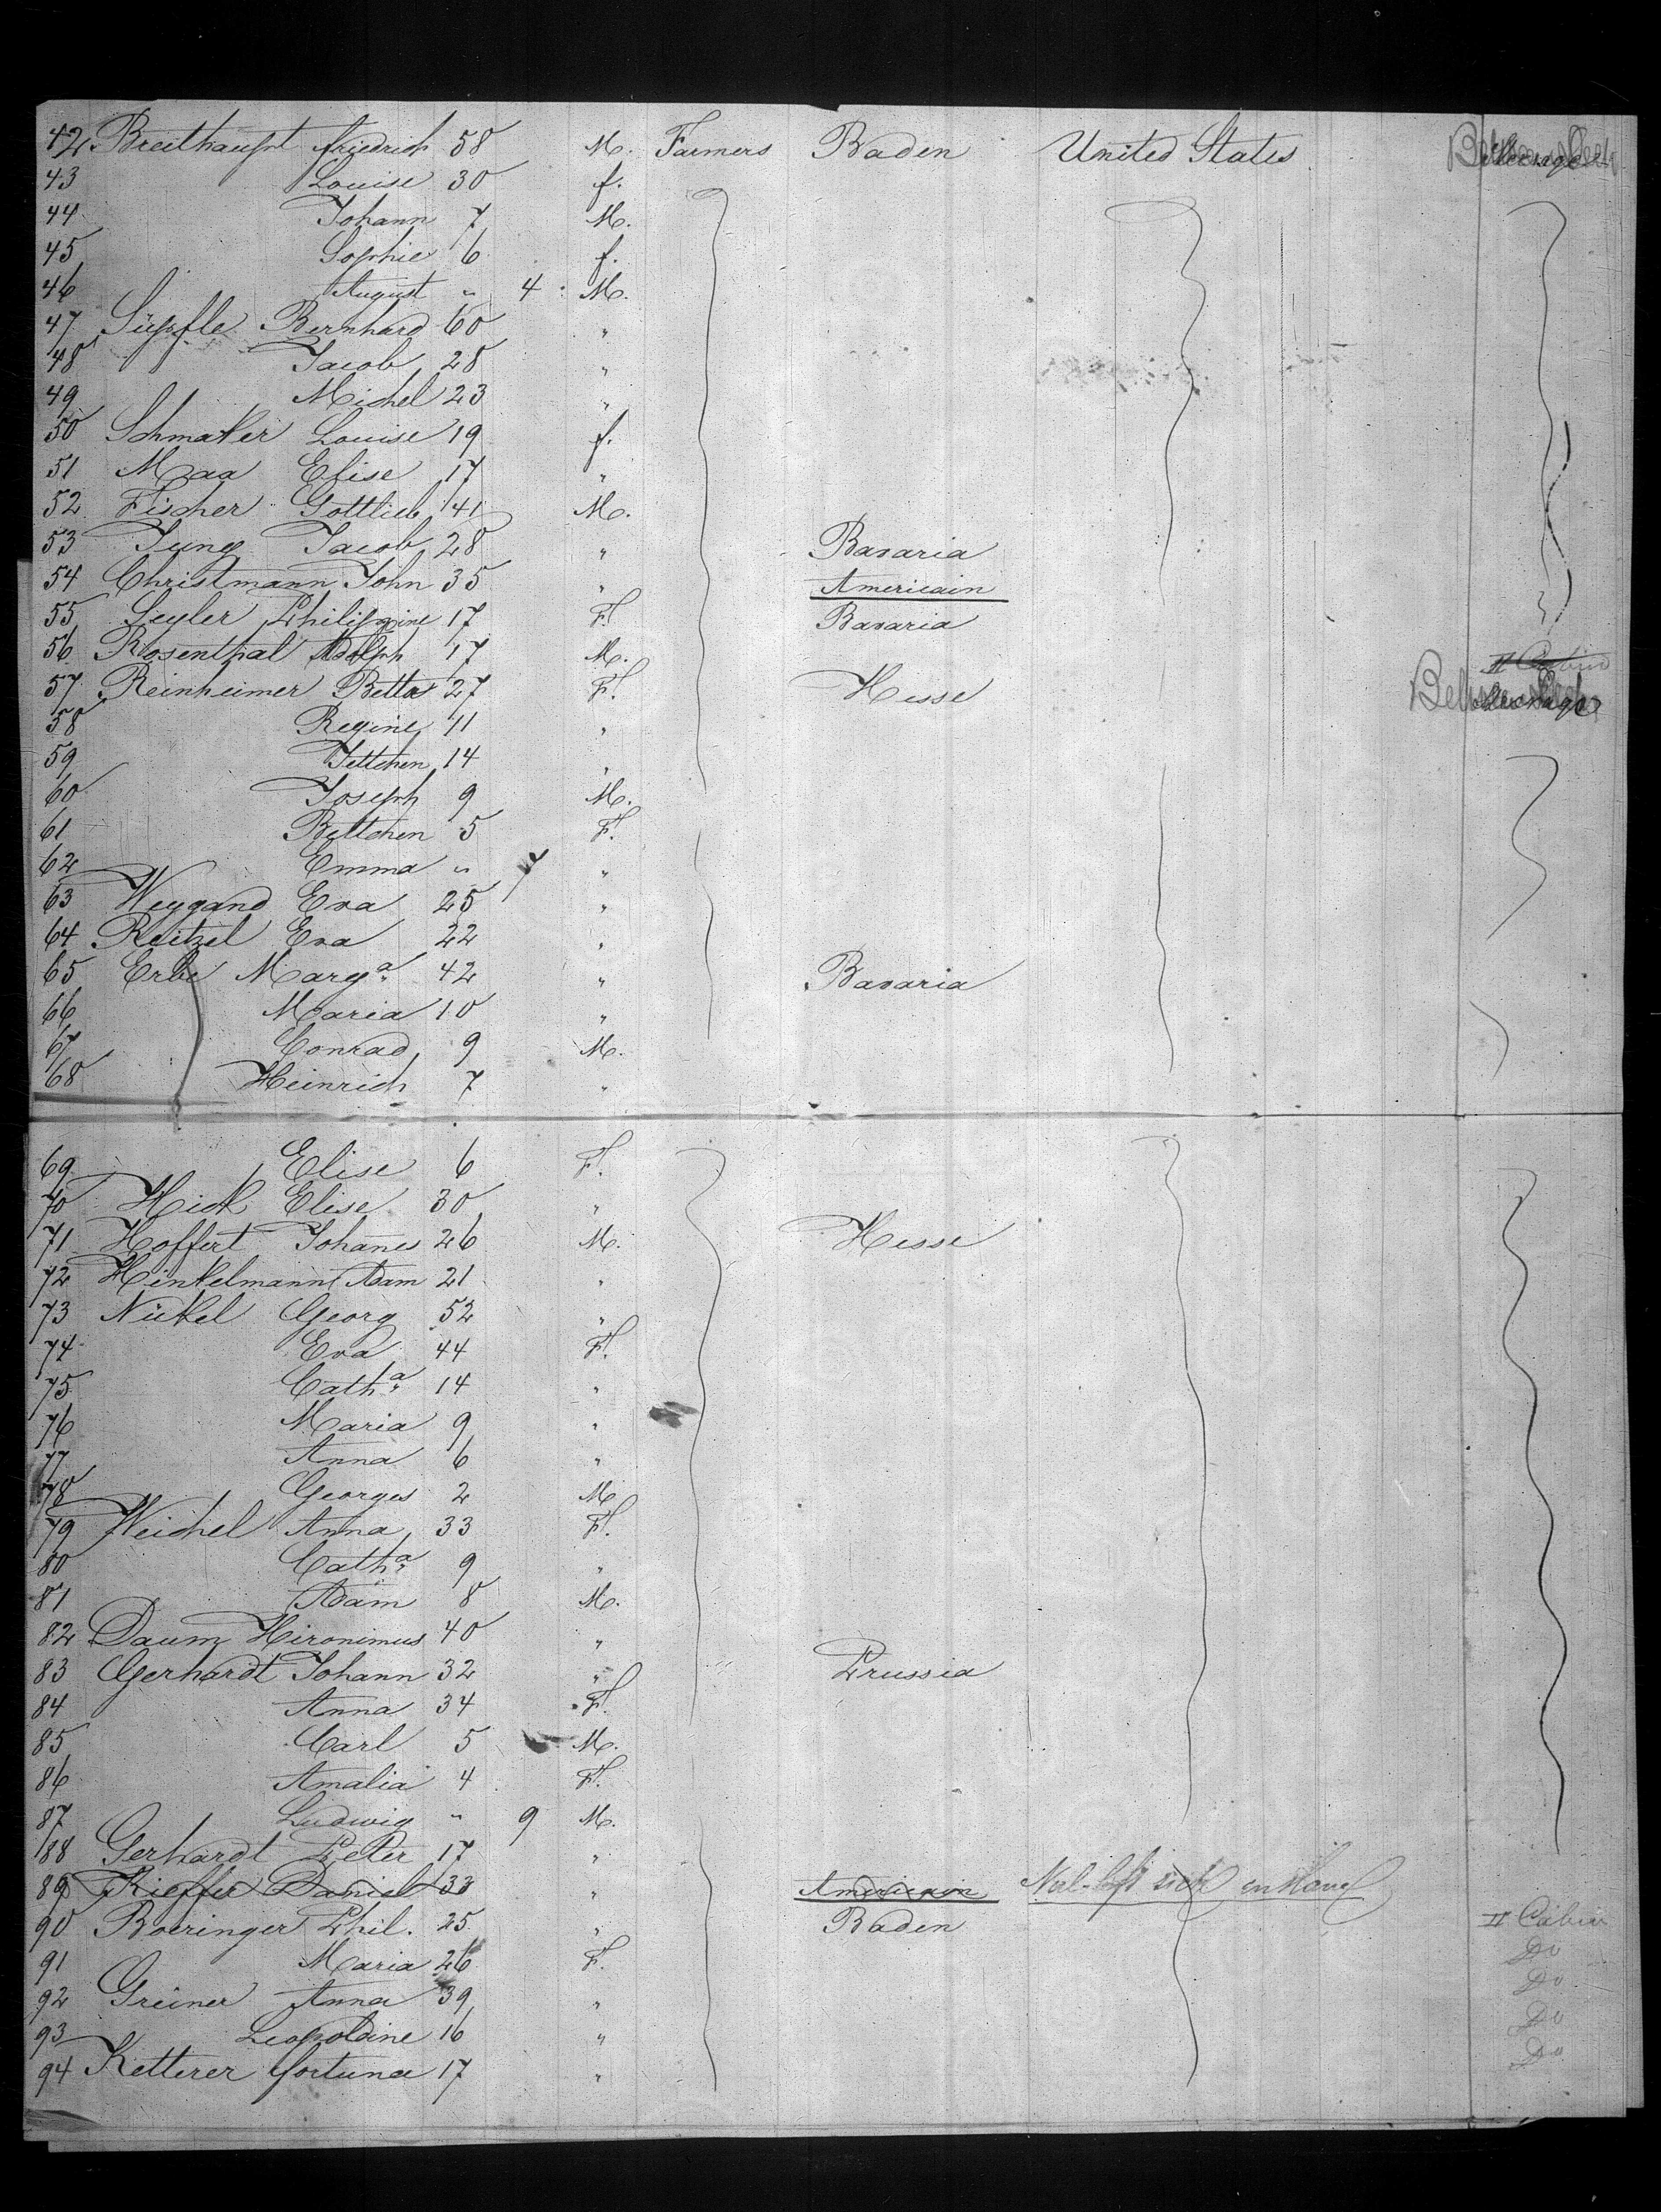 42 Breithaupt Friedrich 58 M. Farmers Baden United States
43 Louise 30 f.
44 Johann 7 M.
45 Sophie 6 f.
46 August " 4 M.
47 Süpfle Bernhard 60 "
48 Jacob 28 "
49 Michel 23 "
50 Schmaker Louise 19 f.
51 Maa Elise 17 "
52 Fischer Gottlieb 41 M.
53 Jung Jacob 28 " Bavaria
54 Christmann John 35 " Americain
55 Seyler Philippine 17 F. Bavaria
56 Rosenthal Adolph 17 M. II Cabin
57 Reinheimer Betta 27 F. Hesse
58 Regine 11 "
59 Jettchen 14 "
60 Joseph 9 M.
61 Bettchen 5 F.
62 Emma " 7 "
63 Weygand Eva 25 "
64 Reitzel Eva 22 "
65 Erbe Marga. 42 " Bavaria
66 Maria 10 "
67 Conrad 9 M.
68 Heinrich 7 "
69 Elise 6 F.
70 Hick Elise 30 "
71 Hoffert Johanes 26 M. Hesse
72 Hinkelmann Adam 21 "
73 Nickel Georg 52 "
74 Eva 44 F.
75 Catha. 14 "
76 Maria 9 "
77 Anna 6 "
78 Georges 2 M
79 Weichel Anna 33 F.
80 Catha. 9 "
81 Adam 8 M.
82 Daum Hironimus 40 "
83 Gerhardt Johann 32 " Prussia
84 Anna 34 F.
85 Carl 5 M.
86 Amalia 4 F.
87 Ludwig " 9 M.
88 Gerhardt Peter 17 "
89 Kieffer Daniel 33 " Americain
90 Boeringer Phil. 25 " Baden II Cabin
91 Maria 26 F. Do
92 Greiner Anna 39 " Do
93 Leopoldine 16 " Do
94 Ketterer Fortuna 17 " Do